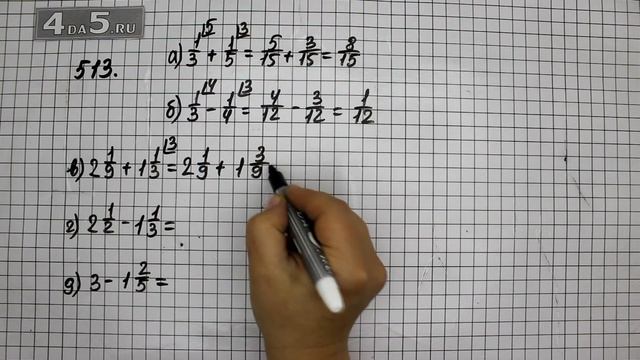 4ДА5.RU
513.
а) 1/3 ⌊5 + 1/5 ⌊3 = 5/15 + 3/15 = 8/15
б) 1/3 ⌊4 - 1/4 ⌊3 = 4/12 - 3/12 = 1/12
в) 2 1/9 + 1 1/3 ⌊3 = 2 1/9 + 1 3/9
г) 2 1/2 - 1 1/3 =
д) 3 - 1 2/5 =